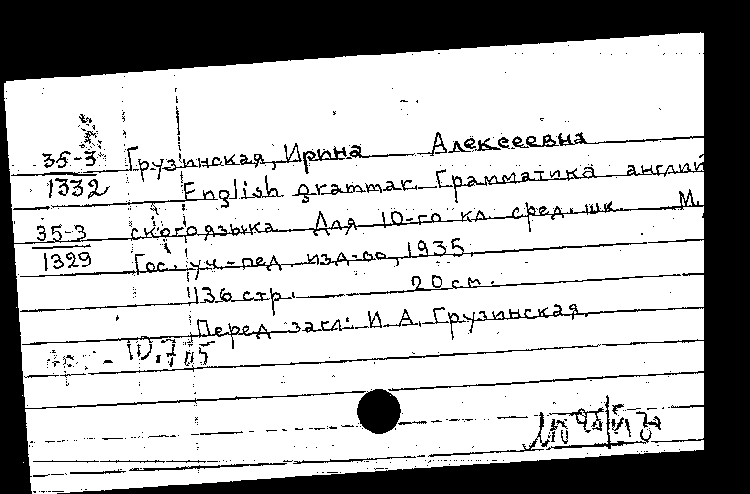 35-3 Грузинская, Ирина Алексеевна
1332 English grammar. Грамматика англий
35-3 ского языка Для 10-го кл. сред. шк. М.,
1329 Гос. уч.-пед. изд-во, 1935.
136 стр. 20 см.
Перед загл: И. А. Грузинская.